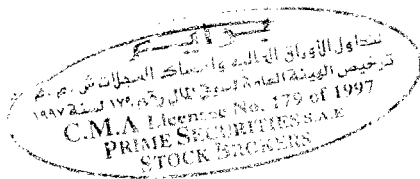 برايم
لتداول الأوراق المالية وامساك السجلات ش . م . م
ترخيص الهيئة العامة لسوق المال رقم ١٧٩ لسنة ١٩٩٧
C.M.A License No. 179 of 1997
PRIME SECURITIES S.A.E
STOCK BROKERS